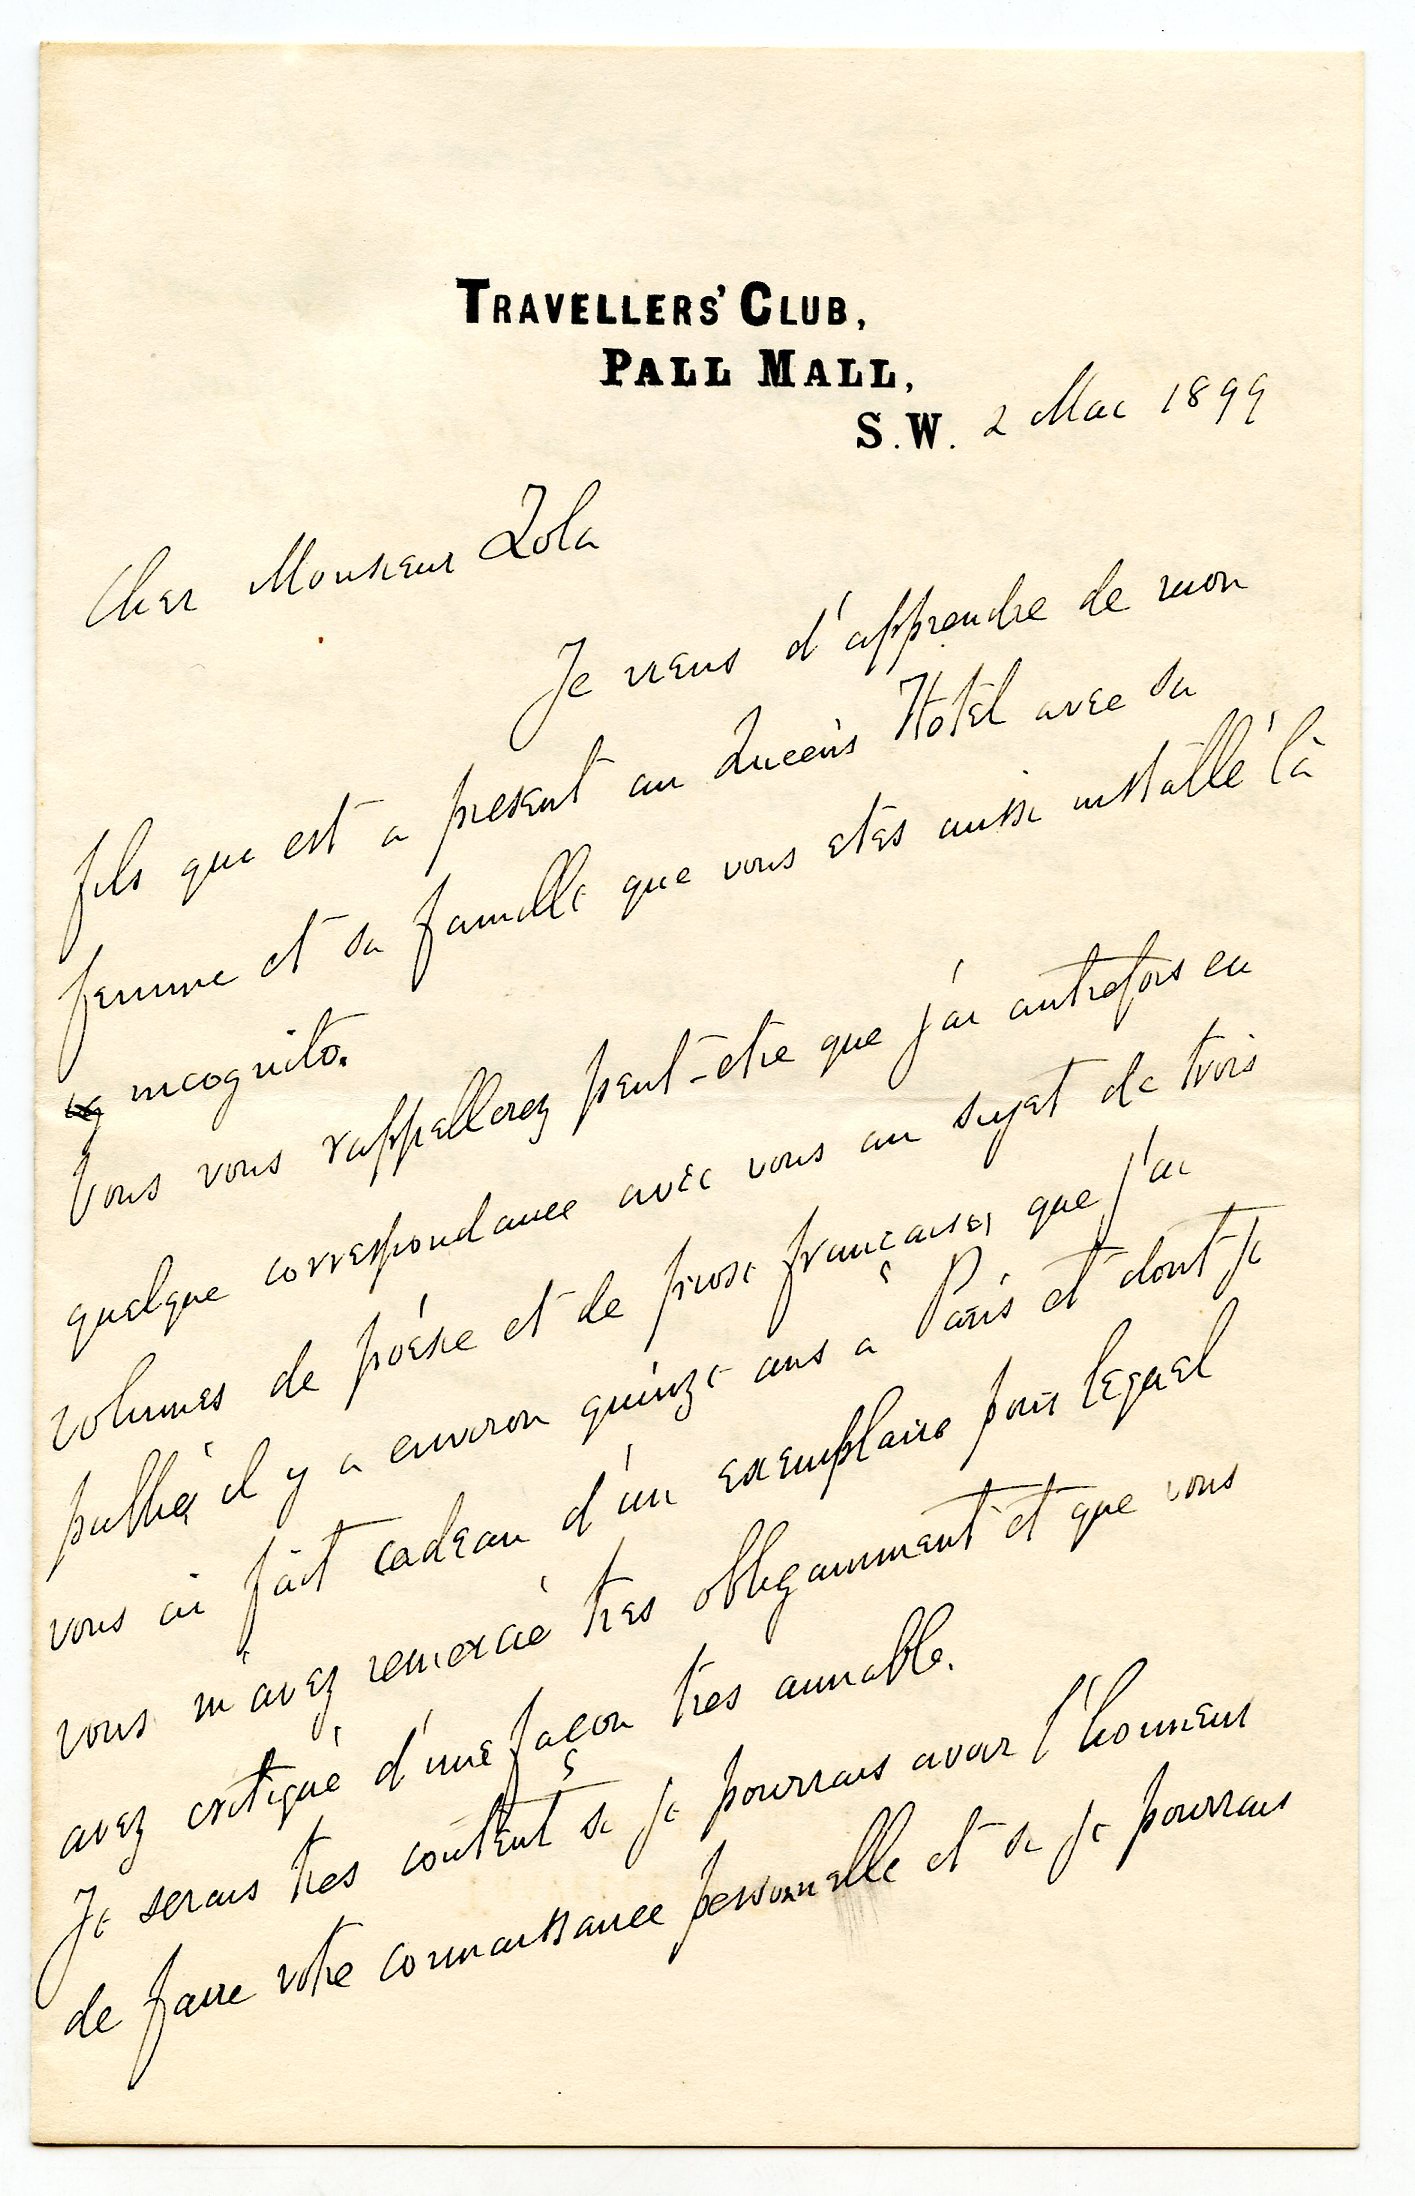 TRAVELLERS' CLUB,
PALL MALL,
S.W. 2 Mai 1899
Cher Monsieur Zola
Je viens d'apprendre de mon
fils qui est a present au Queen's Hotel avec sa
femme et sa famille que vous etes aussi installé là
incognito.
Vous vous rappellerez peut-etre que j'ai autrefois eu
quelque correspondance avec vous au sujet de trois
volumes de poésie et de prose françaises que j'ai
publié il y a environ quinze ans a Paris et dont je
vous ai fait cadeau d'un exemplaire pour lequel
vous m'avez remercié tres obligamment et que vous
avez critiqué d'une façon tres aimable.
Je serais tres content si je pourrais avoir l'honneur
de faire votre connaissance personnelle et si je pourrais